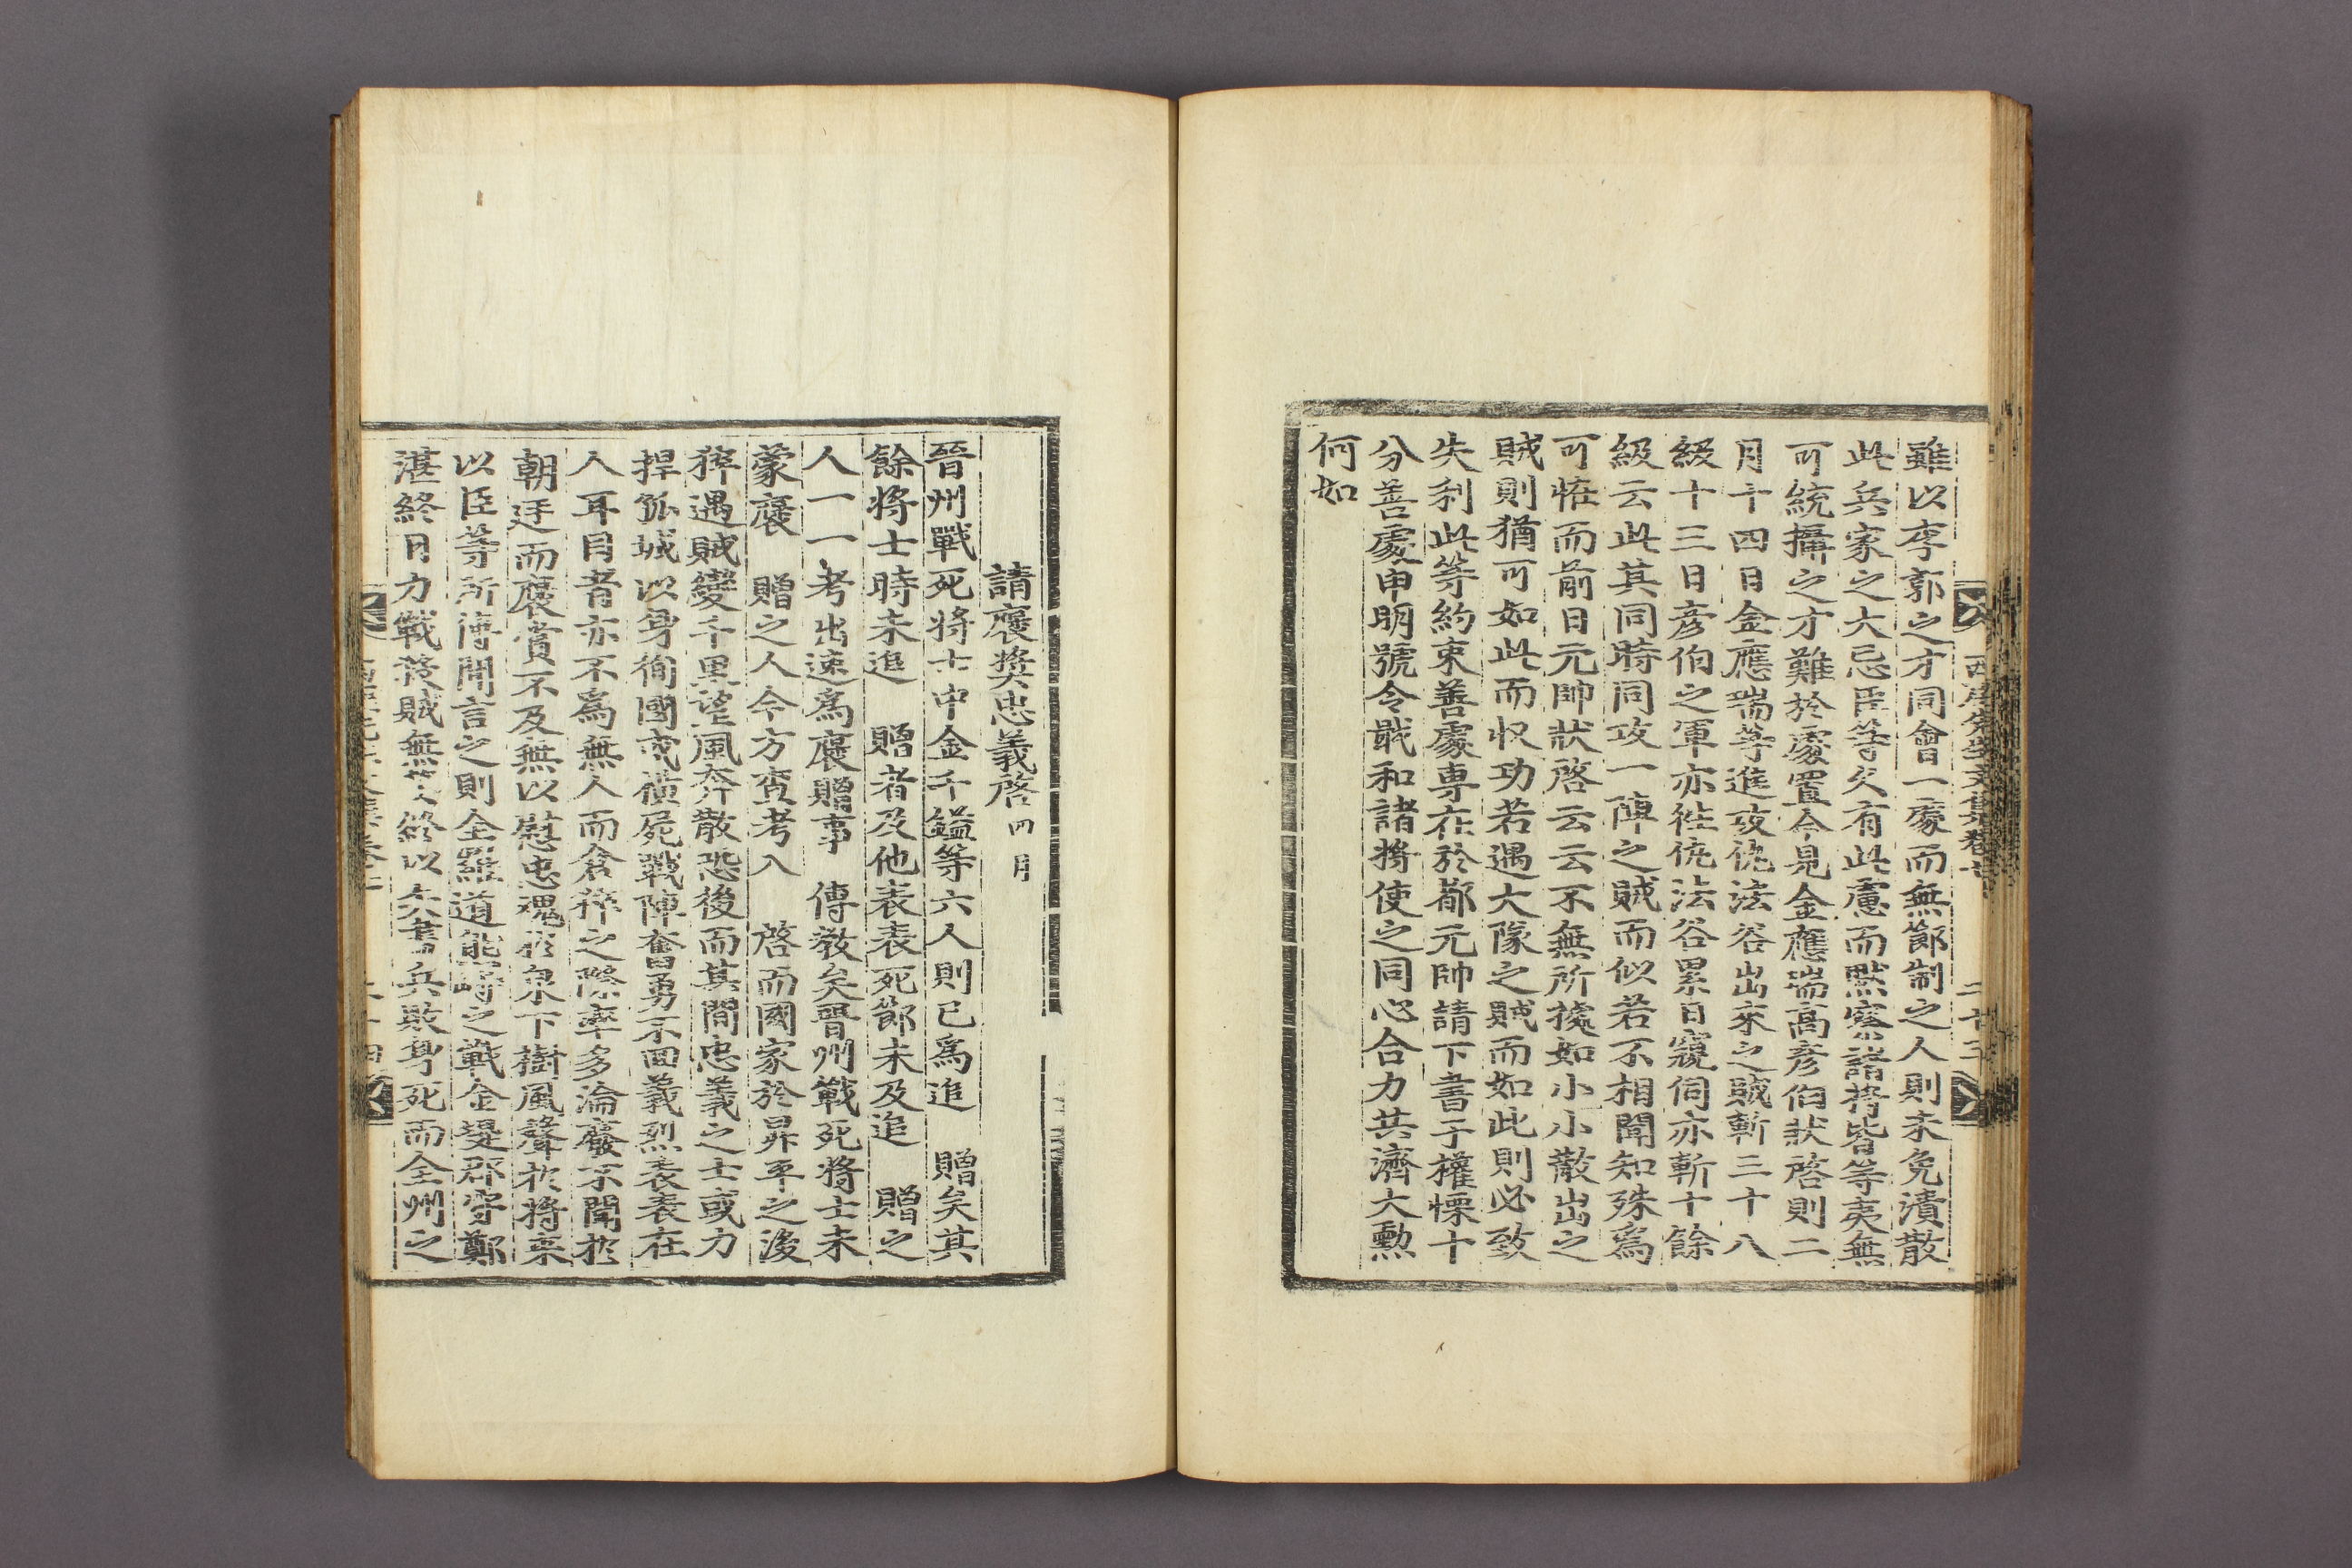 雖以李郭之才同會一處而無節制之人則未免潰散
此兵家之大忌臣等久有此慮而默察諸將皆等夷無
可統攝之才難於處置今見金應瑞高彦伯狀啓則二
月十四日金應瑞等進攻仇法谷出來之賊斬三十八
級十三日彦伯之軍亦徃仇法谷累日窺伺亦斬十餘
級云此其同時同攻一陣之賊而似若不相聞知殊爲
可恠而前日元帥狀啓云云不無所據如小小散出之
賊則猶可如此而收功若遇大隊之賊而如此則必致
失利此等約束善處專在於都元帥請下書于權慄十
分善處申明號令戢和諸將使之同心合力共濟大勳
何如
請襃奬忠義啓 四月
晉州戰死將士中金千鎰等六人則已爲追 贈矣其
餘將士時未追 贈者及他表表死節未及追 贈之
人一一考出速爲襃贈事 傳敎矣晉州戰死將士未
蒙襃 贈之人今方査考入 啓而國家於昇平之後
猝遇賊變千里望風奔散恐後而其間忠義之士或力
捍孤城以身徇國或橫屍戰陣奮勇不回義烈表表在
人耳目者亦不爲無人而倉猝之際率多淪廢不聞於
朝廷而襃賞不及無以慰忠魂於泉下樹風聲於將來
以臣等所傳聞言之則全羅道熊峙之戰金堤郡守鄭
湛終日力戰殺賊無 終以矢盡兵敗身死而全州之